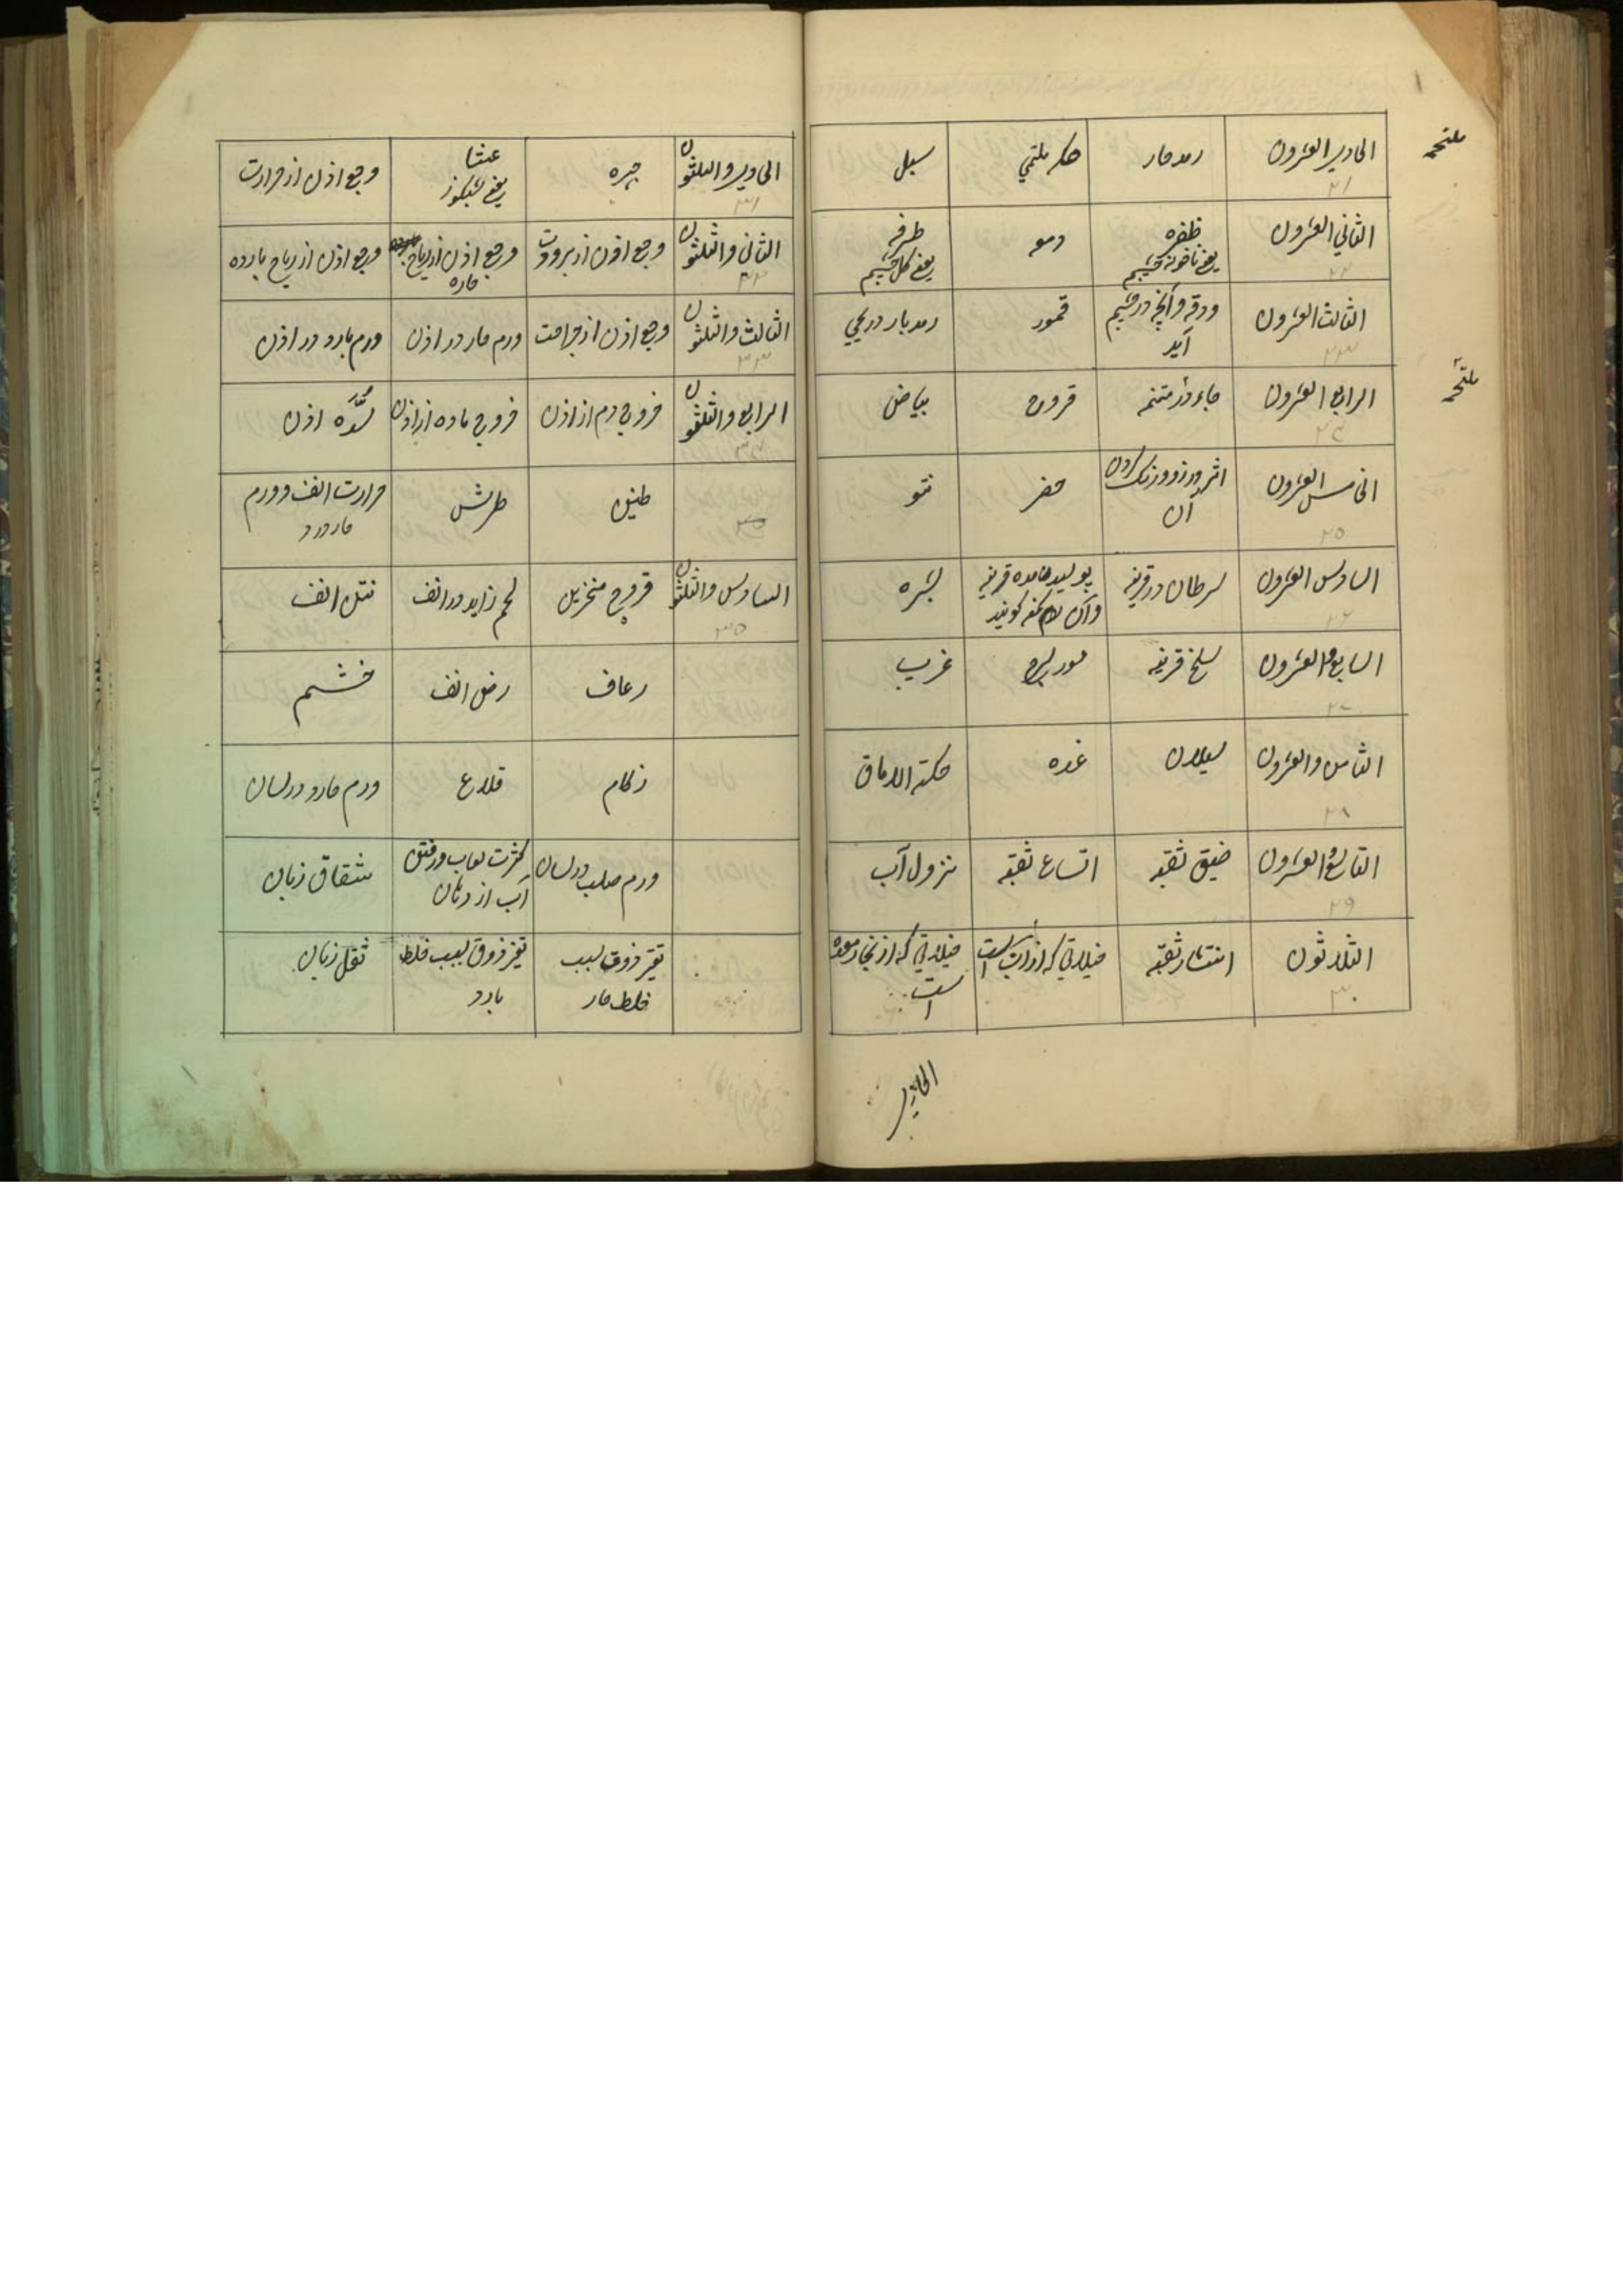 الحادي العشرون
رمد حار
حکه ملتحمي
سبل
ملتحمه
۲۱
الثاني العشرون
ظفره
یعنی ناخونه چشم
دمعه
طرفه
یعنی گل چشم
۲۲
الثالث العشرون
ودقه و آنچه در چشم
آید
قمور
رمد بارد ریحي
۲۳
الرابع العشرون
قروح
بیاض
ملتحمه
۲۴
الخامس العشرون
اثر
آن
حفر
نتو
۲۵
السادس العشرون
سرطان در قرنیه
قرنیه
بثره
و آن را کمنه گویند
۲۶
السابع والعشرون
سلخ قرنیه
مورسرج
غرب
۲۷
الثامن والعشرون
سیلان
غده
حکة الاماق
۲۸
التاسع والعشرون
ضیق ثقبه
اتساع ثقبه
نزول آب
۲۹
الثلاثون
انتشار ثقبه
خیالاتي که از آب است
خیالاتي که از بخار معده
است
۳۰
الحادي
الحادي والثلثون
جهره
عشا
یعنی شبکوز
وجع اذن از حرارت
۳۱
الثاني والثلثون
وجع اذن از برودت
وجع اذن از ریاح
حاره
وجع اذن از ریاح بارده
۳۲
الثالث والثلثون
وجع اذن از جراحت
ورم حار در اذن
ورم بارد در اذن
۳۳
الرابع والثلثون
خروج دم از اذن
خروج ماده از اذن
سُدّه اذن
۳۴
طنین
طرش
حرارت انف و ورم
حار در و
السادس والثلثون
قروح منخرین
لحم زاید در انف
نتن انف
۳۵
رعاف
رض انف
خشم
زکام
قلاع
ورم حار در لسان
ورم صلب در لسان
کثرت لعاب و رفتن
آب از دهان
شقاق زبان
تغیر ذوق بسبب
خلط حار
تغیر ذوق بسبب خلط
بارد
ثقل زبان